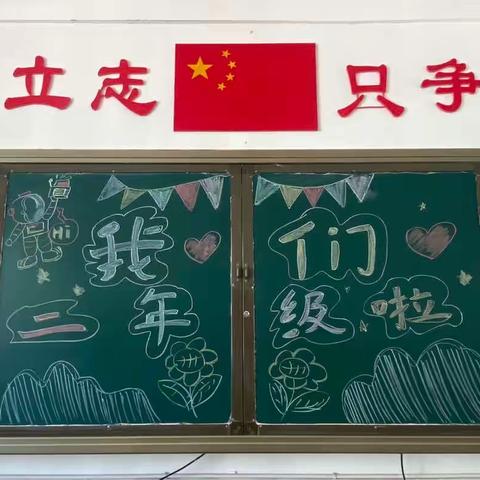 立志 只争
Hi
我们
二年级啦